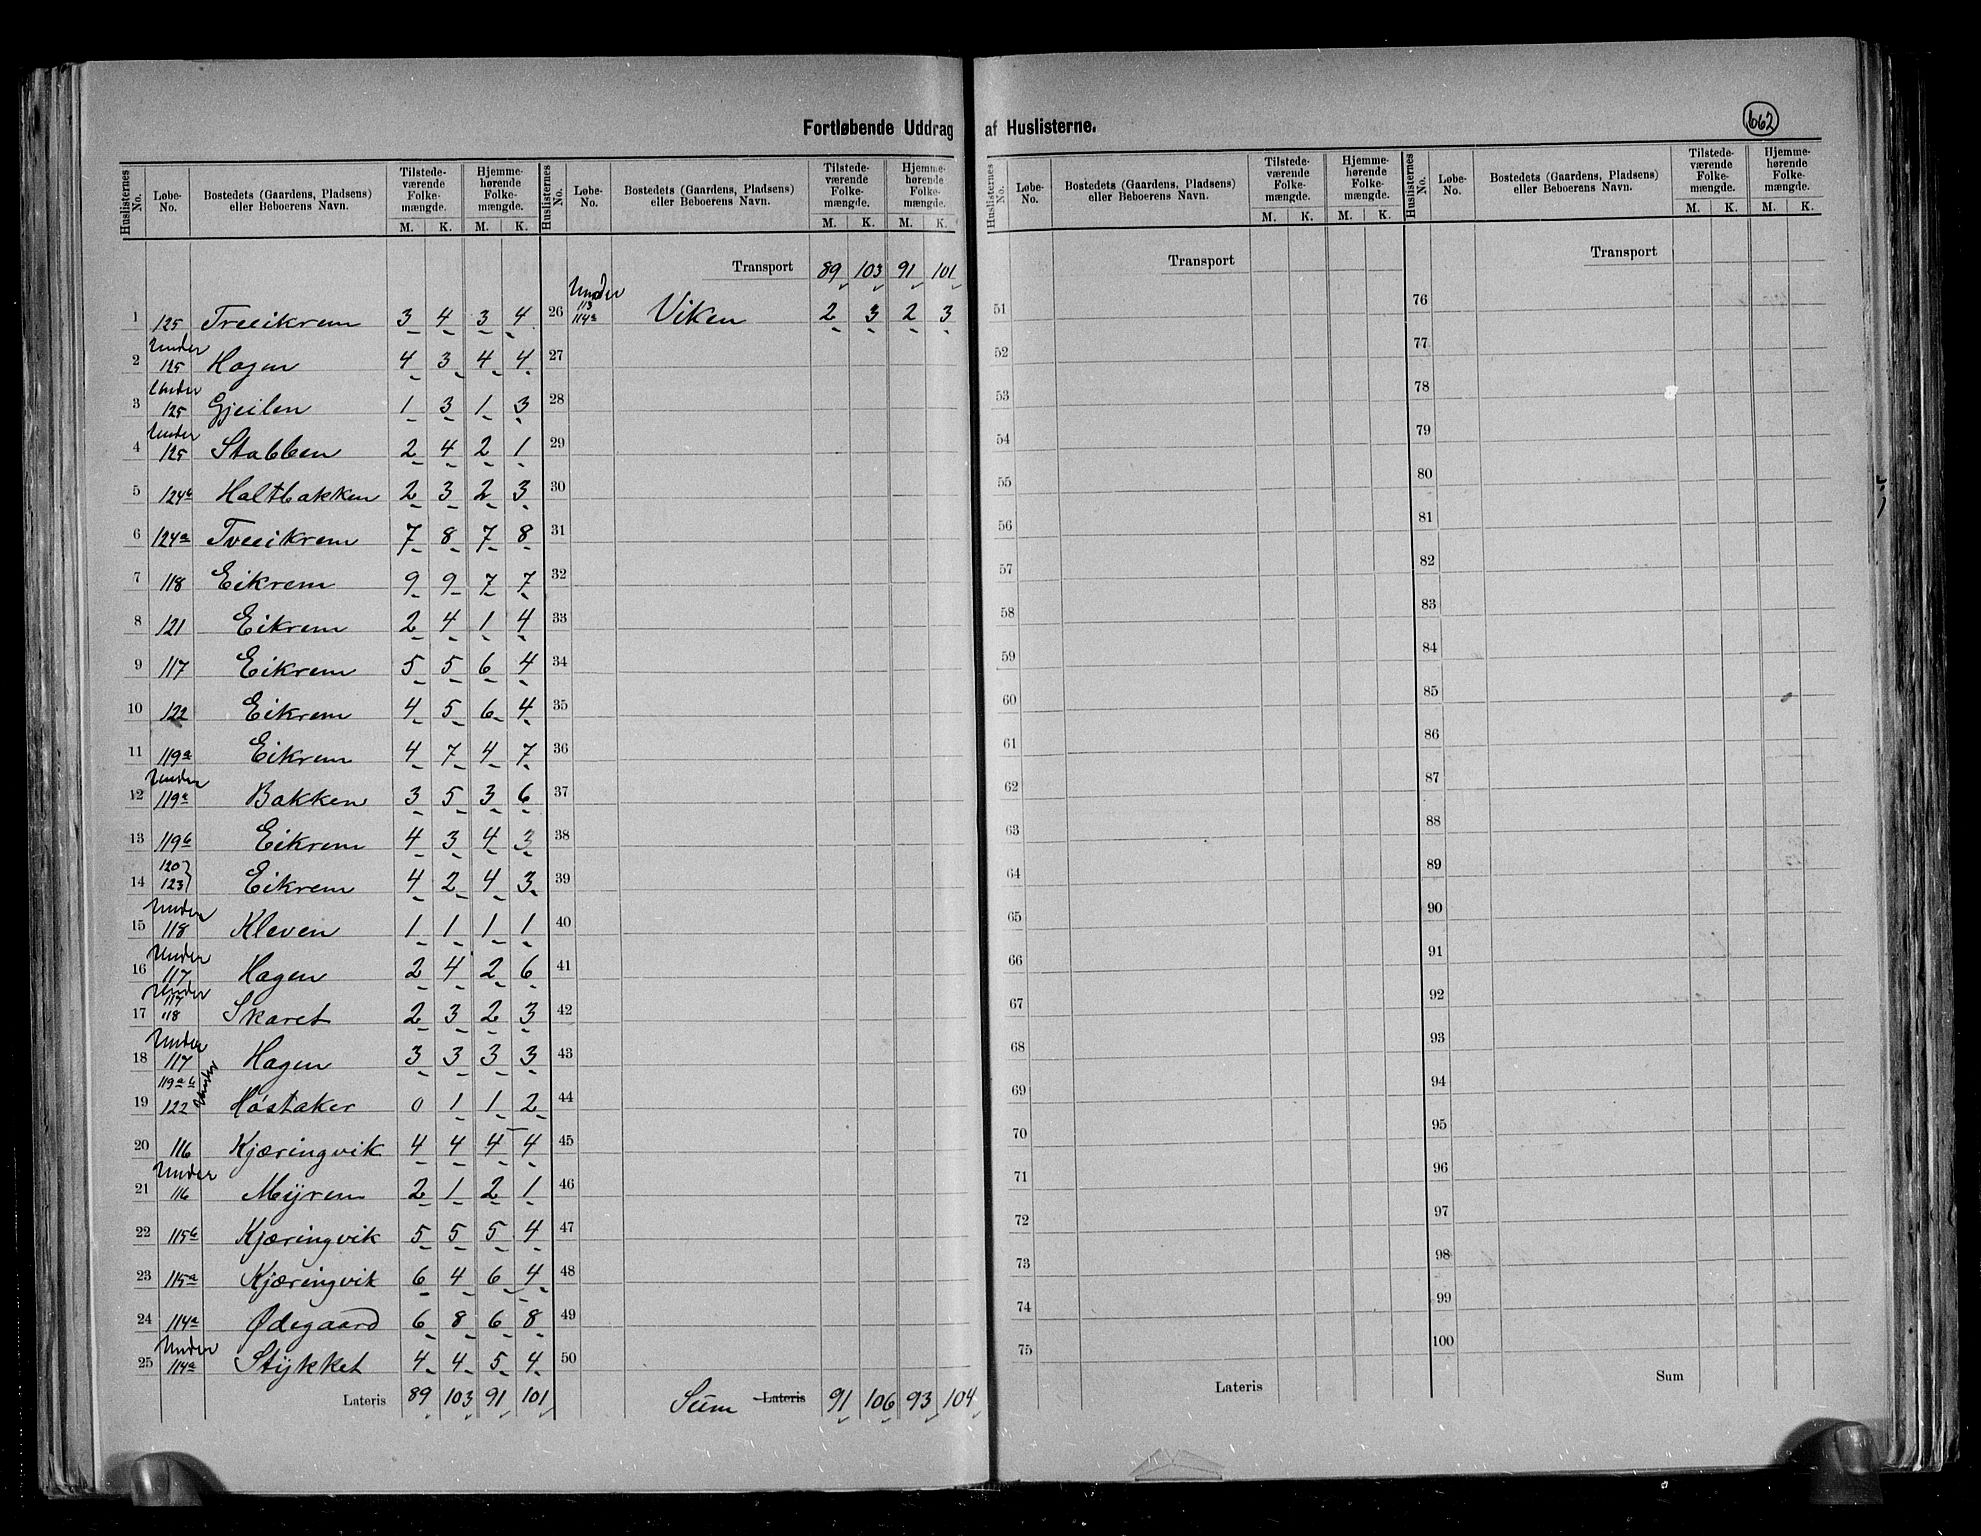 Fortløbende Uddrag af Huslisterne.
662
Huslisternes No. | Løbe-No. | Bostedets (Gaardens, Pladsens) eller Beboerens Navn. | Tilstedeværende Folkemængde. M. K. | Hjemmehørende Folkemængde. M. K.
1 125 Treeikrem 3 4 3 4
2 Under 125 Hagen 4 3 4 4
3 Under 125 Gjeilen 1 3 1 3
4 Under 125 Stabben 2 4 2 1
5 124b Haltbakken 2 3 2 3
6 124a Tveeikrem 7 8 7 8
7 118 Eikrem 9 9 7 7
8 121 Eikrem 2 4 1 4
9 117 Eikrem 5 5 6 4
10 122 Eikrem 4 5 6 4
11 119a Eikrem 4 7 4 7
12 Under 119a Bakken 3 5 3 6
13 119b Eikrem 4 3 4 3
14 120 123 Eikrem 4 2 4 3
15 Under 118 Kleven 1 1 1 1
16 Under 117 Hagen 2 4 2 6
17 Under 117 118 Skaret 2 3 2 3
18 Under 117 Hagen 3 3 3 3
19 119a b 122 Under Høstaker 0 1 1 2
20 116 Kjæringvik 4 4 4 4
21 Under 116 Myren 2 1 2 1
22 115b Kjæringvik 5 5 5 4
23 115a Kjæringvik 6 4 6 4
24 114a Ødegaard 6 8 6 8
25 Under 114a Stykket 4 4 5 4
Lateris 89 103 91 101
Huslisternes No. | Løbe-No. | Bostedets (Gaardens, Pladsens) eller Beboerens Navn. | Tilstedeværende Folkemængde. M. K. | Hjemmehørende Folkemængde. M. K.
Transport 89 103 91 101
26 Under 113 114a Viken 2 3 2 3
27
28
29
30
31
32
33
34
35
36
37
38
39
40
41
42
43
44
45
46
47
48
49
50
Sum Lateris 91 106 93 104
Huslisternes No. | Løbe-No. | Bostedets (Gaardens, Pladsens) eller Beboerens Navn. | Tilstedeværende Folkemængde. M. K. | Hjemmehørende Folkemængde. M. K.
Transport
51
52
53
54
55
56
57
58
59
60
61
62
63
64
65
66
67
68
69
70
71
72
73
74
75
Lateris
Huslisternes No. | Løbe-No. | Bostedets (Gaardens, Pladsens) eller Beboerens Navn. | Tilstedeværende Folkemængde. M. K. | Hjemmehørende Folkemængde. M. K.
Transport
76
77
78
79
80
81
82
83
84
85
86
87
88
89
90
91
92
93
94
95
96
97
98
99
100
Sum